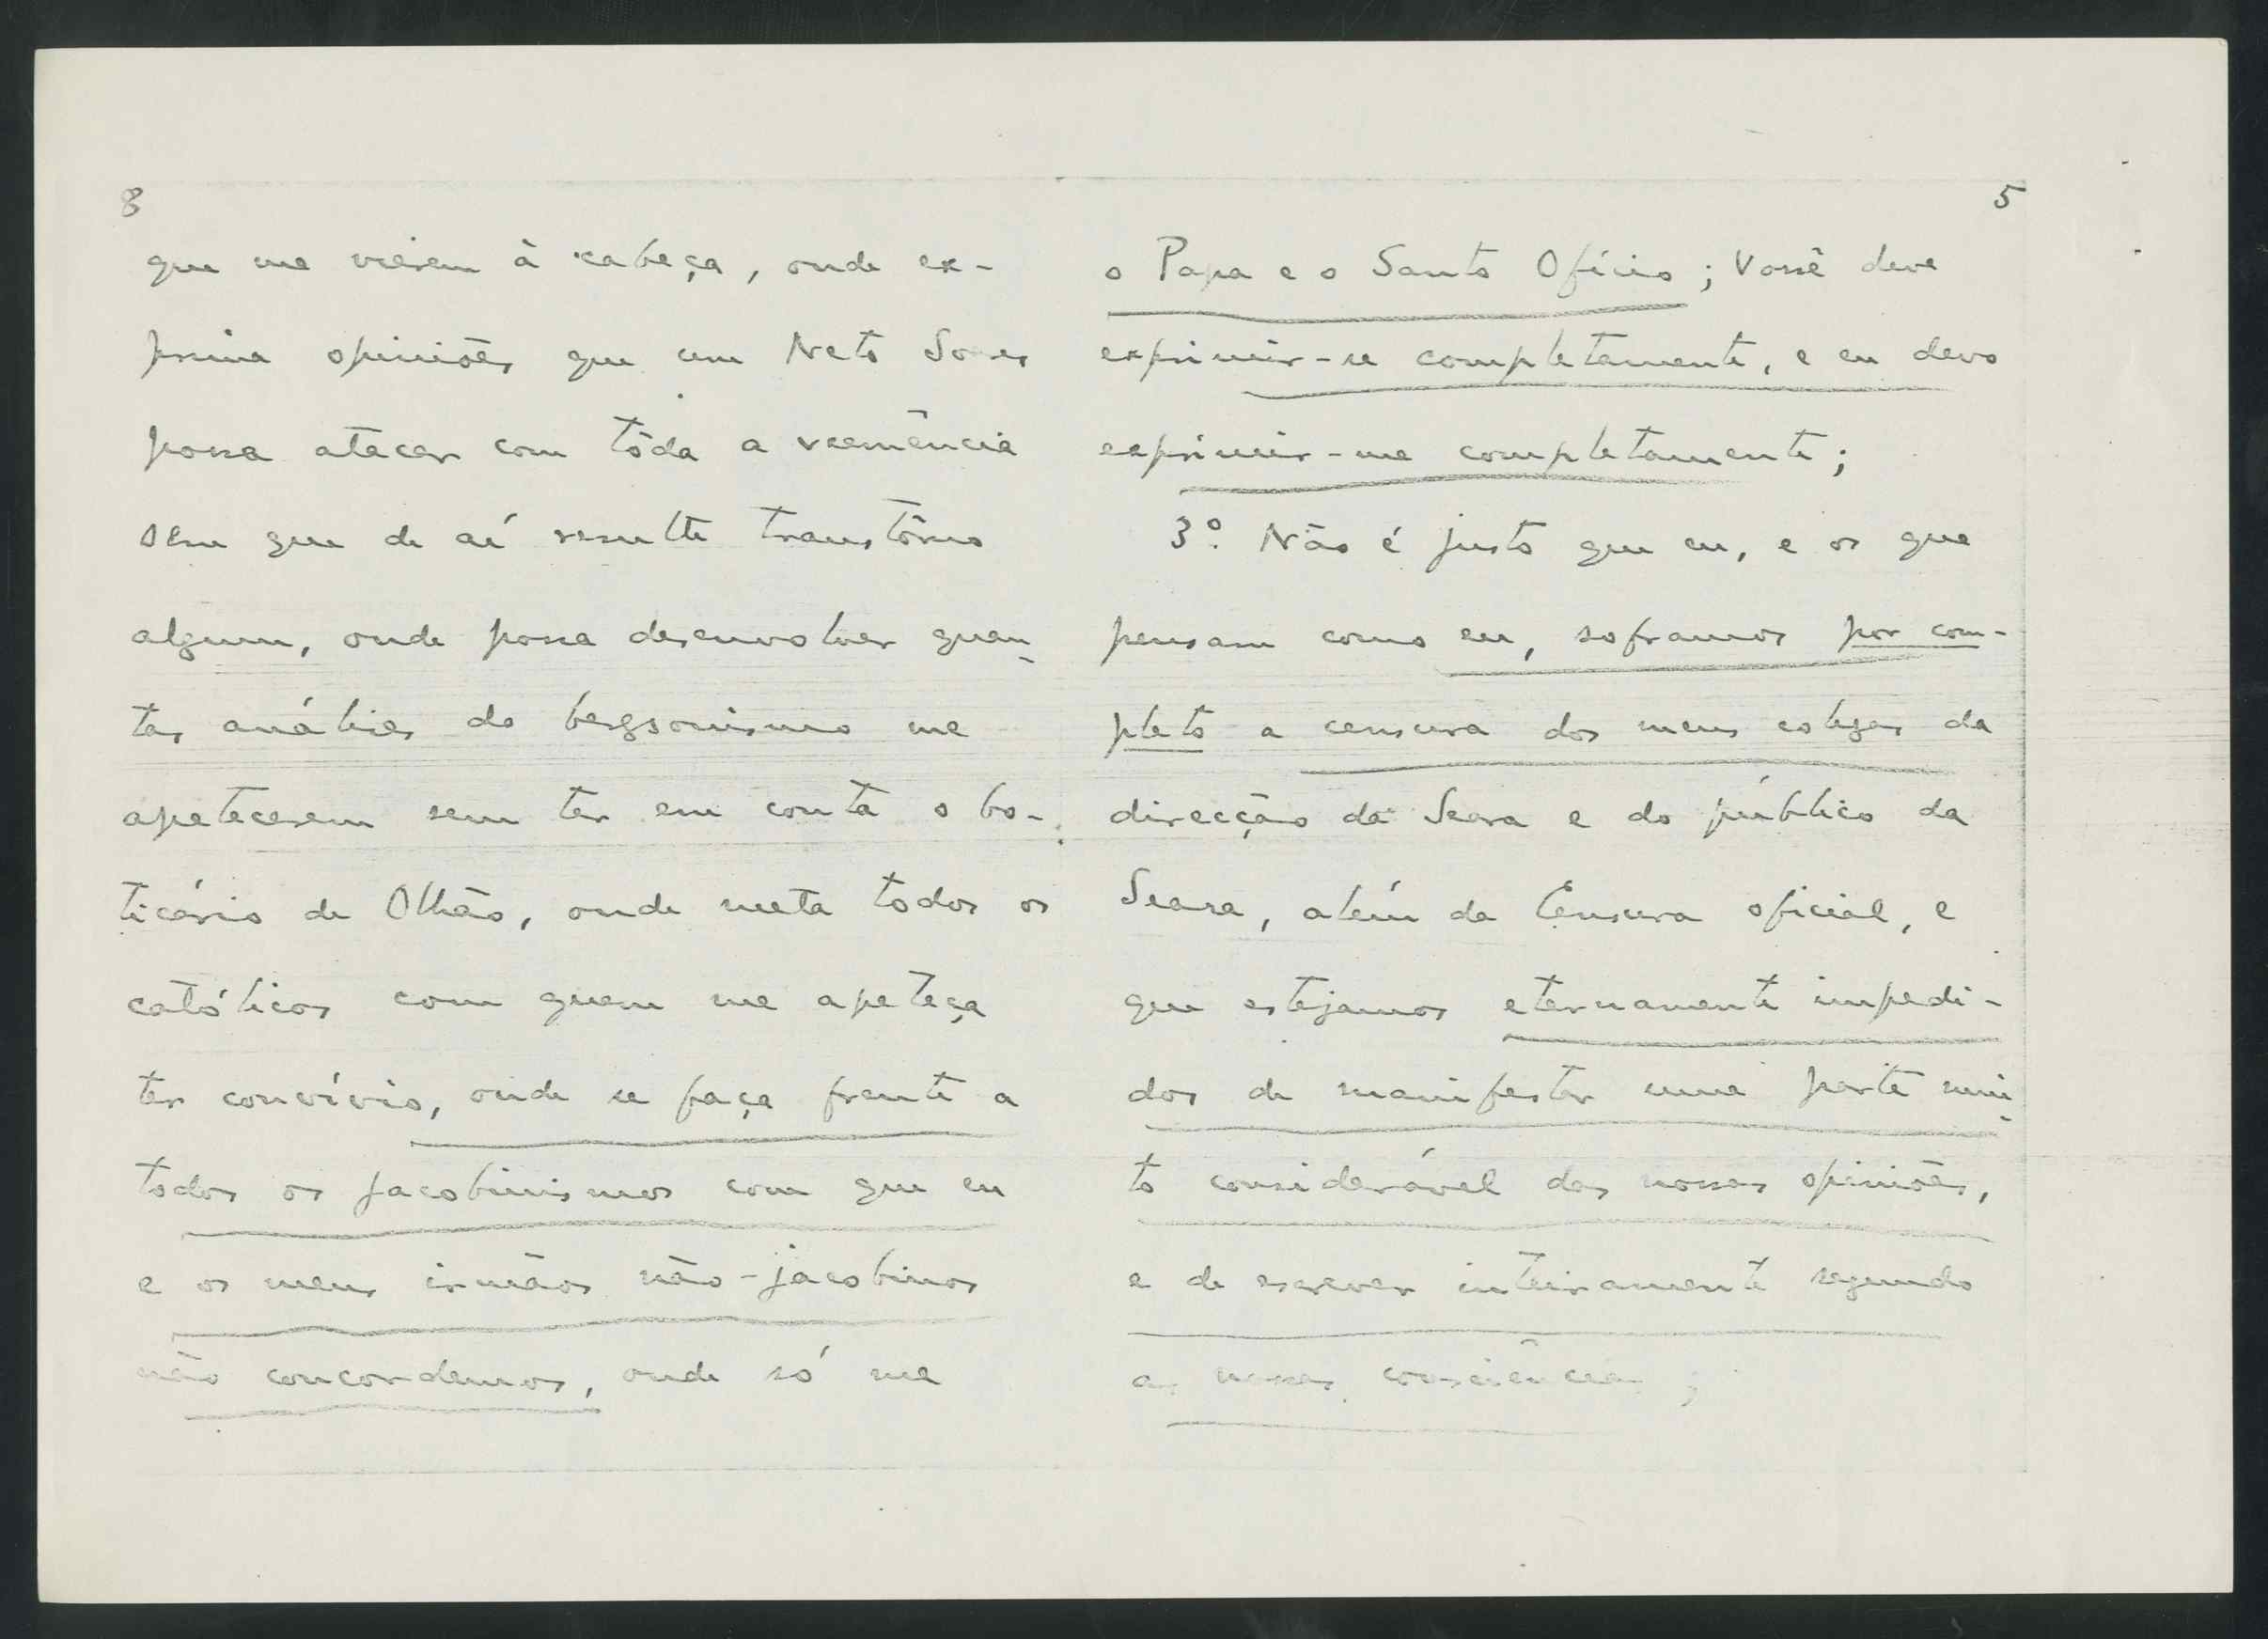 8
que me vierem à cabeça, onde ex-
prima opiniões que um Neto Soares
possa atacar com tôda a veemência
sem que de aí resulte transtôrno
algum, onde possa desenvolver quan-
tas análises do bergsonismo me
apetecerem sem ter em conta o bo-
ticário de Olhão, onde meta todos os
católicos com quem me apeteça
ter convívio, onde se faça frente a
todos os jacobinismos com que eu
e os meus irmãos não-jacobinos
não concordemos, onde só me
5
o Papa e o Santo Ofício; Você deve
exprimir-se completamente, e eu devo
exprimir-me completamente;
3º. Não é justo que eu, e os que
pensam como eu, soframos por com-
pleto a censura dos meus colegas da
direcção da Seara e do público da
Seara, além da Censura oficial, e
que estejamos eternamente impedi-
dos de manifestar uma parte mui-
to considerável das nossas opiniões,
e de escrever inteiramente segundo
as nossas consciências;